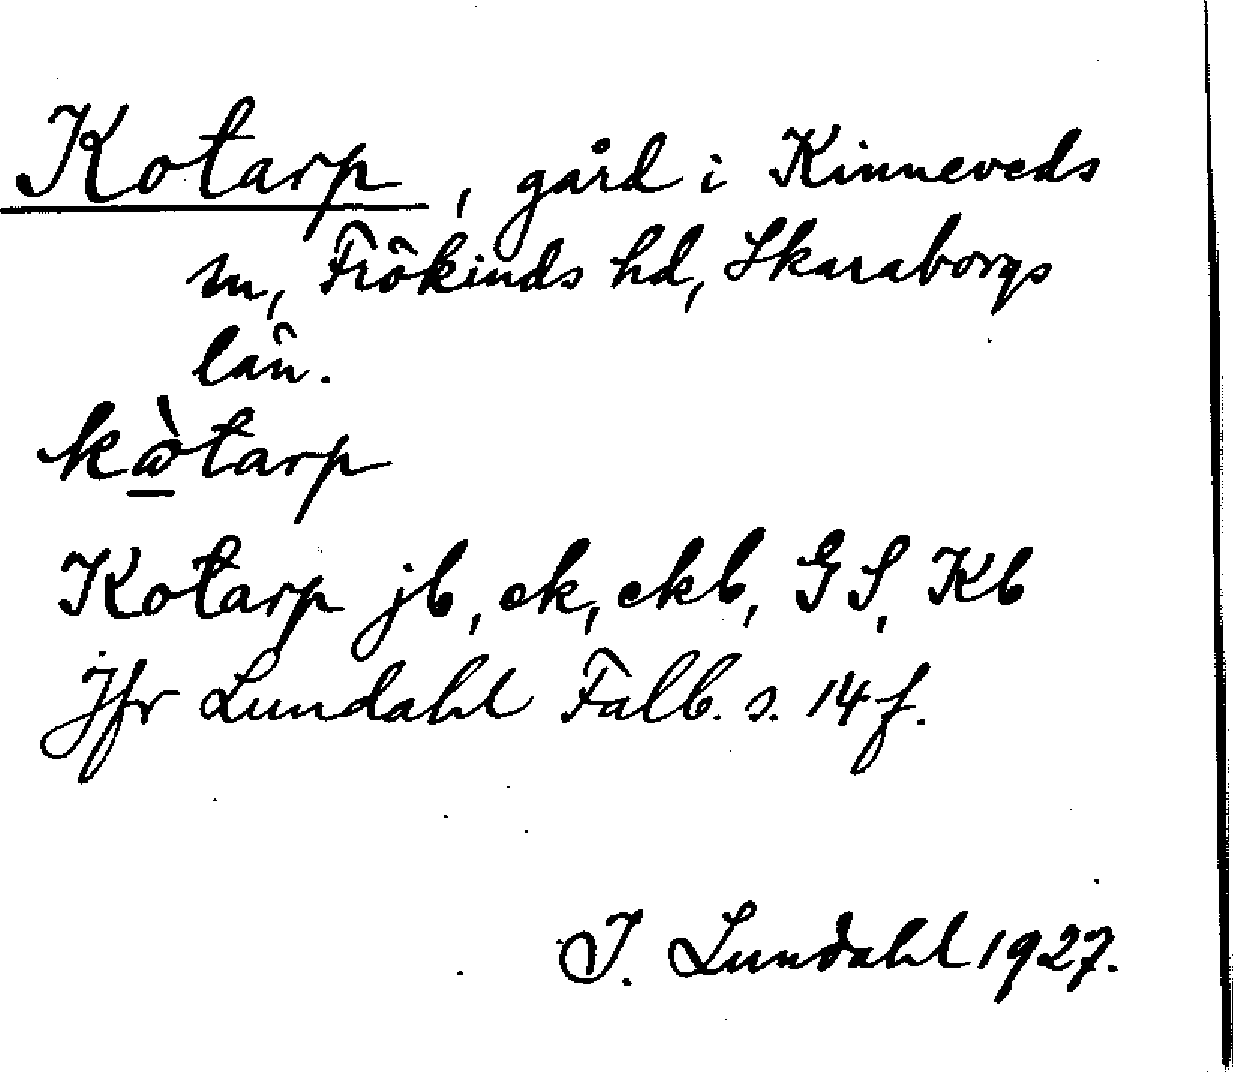 Kotarp, gård i Kinneveds
sn, Frökinds hd, Skaraborgs
län.
Kotarp jb, ek, ekb, GS, Kb
Jfr Lundahl Falb. s. 14 f.
I. Lundahl 1927.